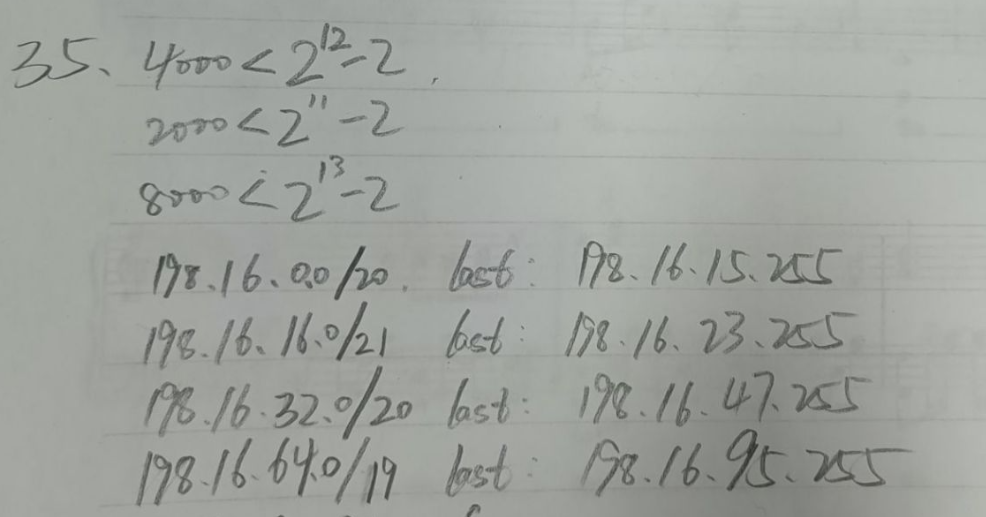 35、 4000 < 2^12 - 2 .
2000 < 2^11 - 2
8000 < 2^13 - 2
198.16.0.0/20. last: 198.16.15.255
198.16.16.0/21 last: 198.16.23.255
198.16.32.0/20 last: 198.16.47.255
198.16.64.0/19 last: 198.16.95.255